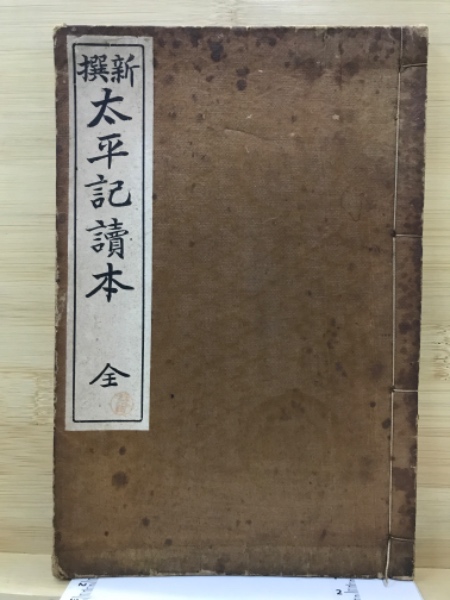 新撰
太平記讀本
全
2
2